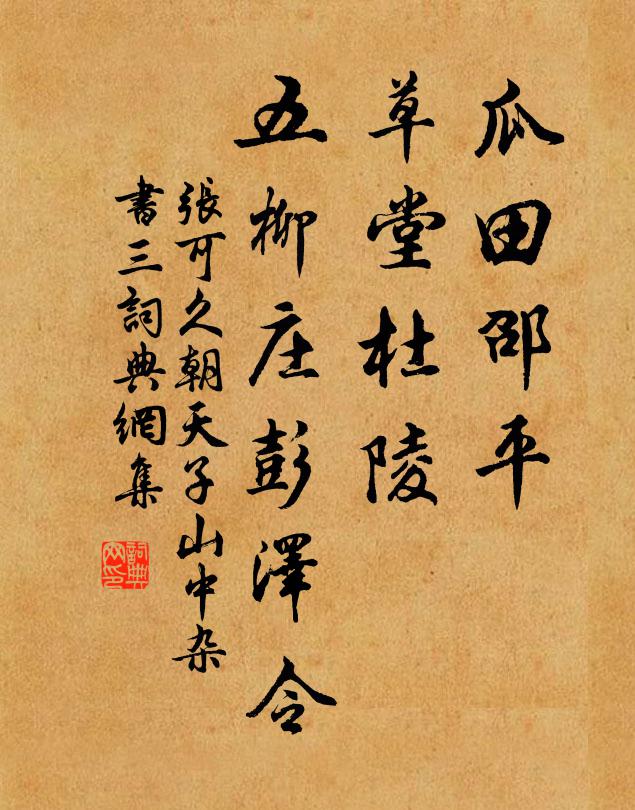 瓜田邵平
草堂杜陵
五柳庄彭澤令
張可久朝天子山中杂
書三詞典網集
詞典
网印